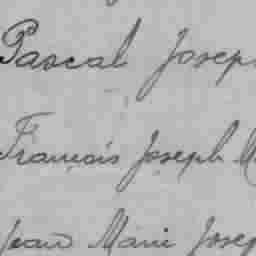 Pascal Joseph
François Joseph M
Jean Marie Josep